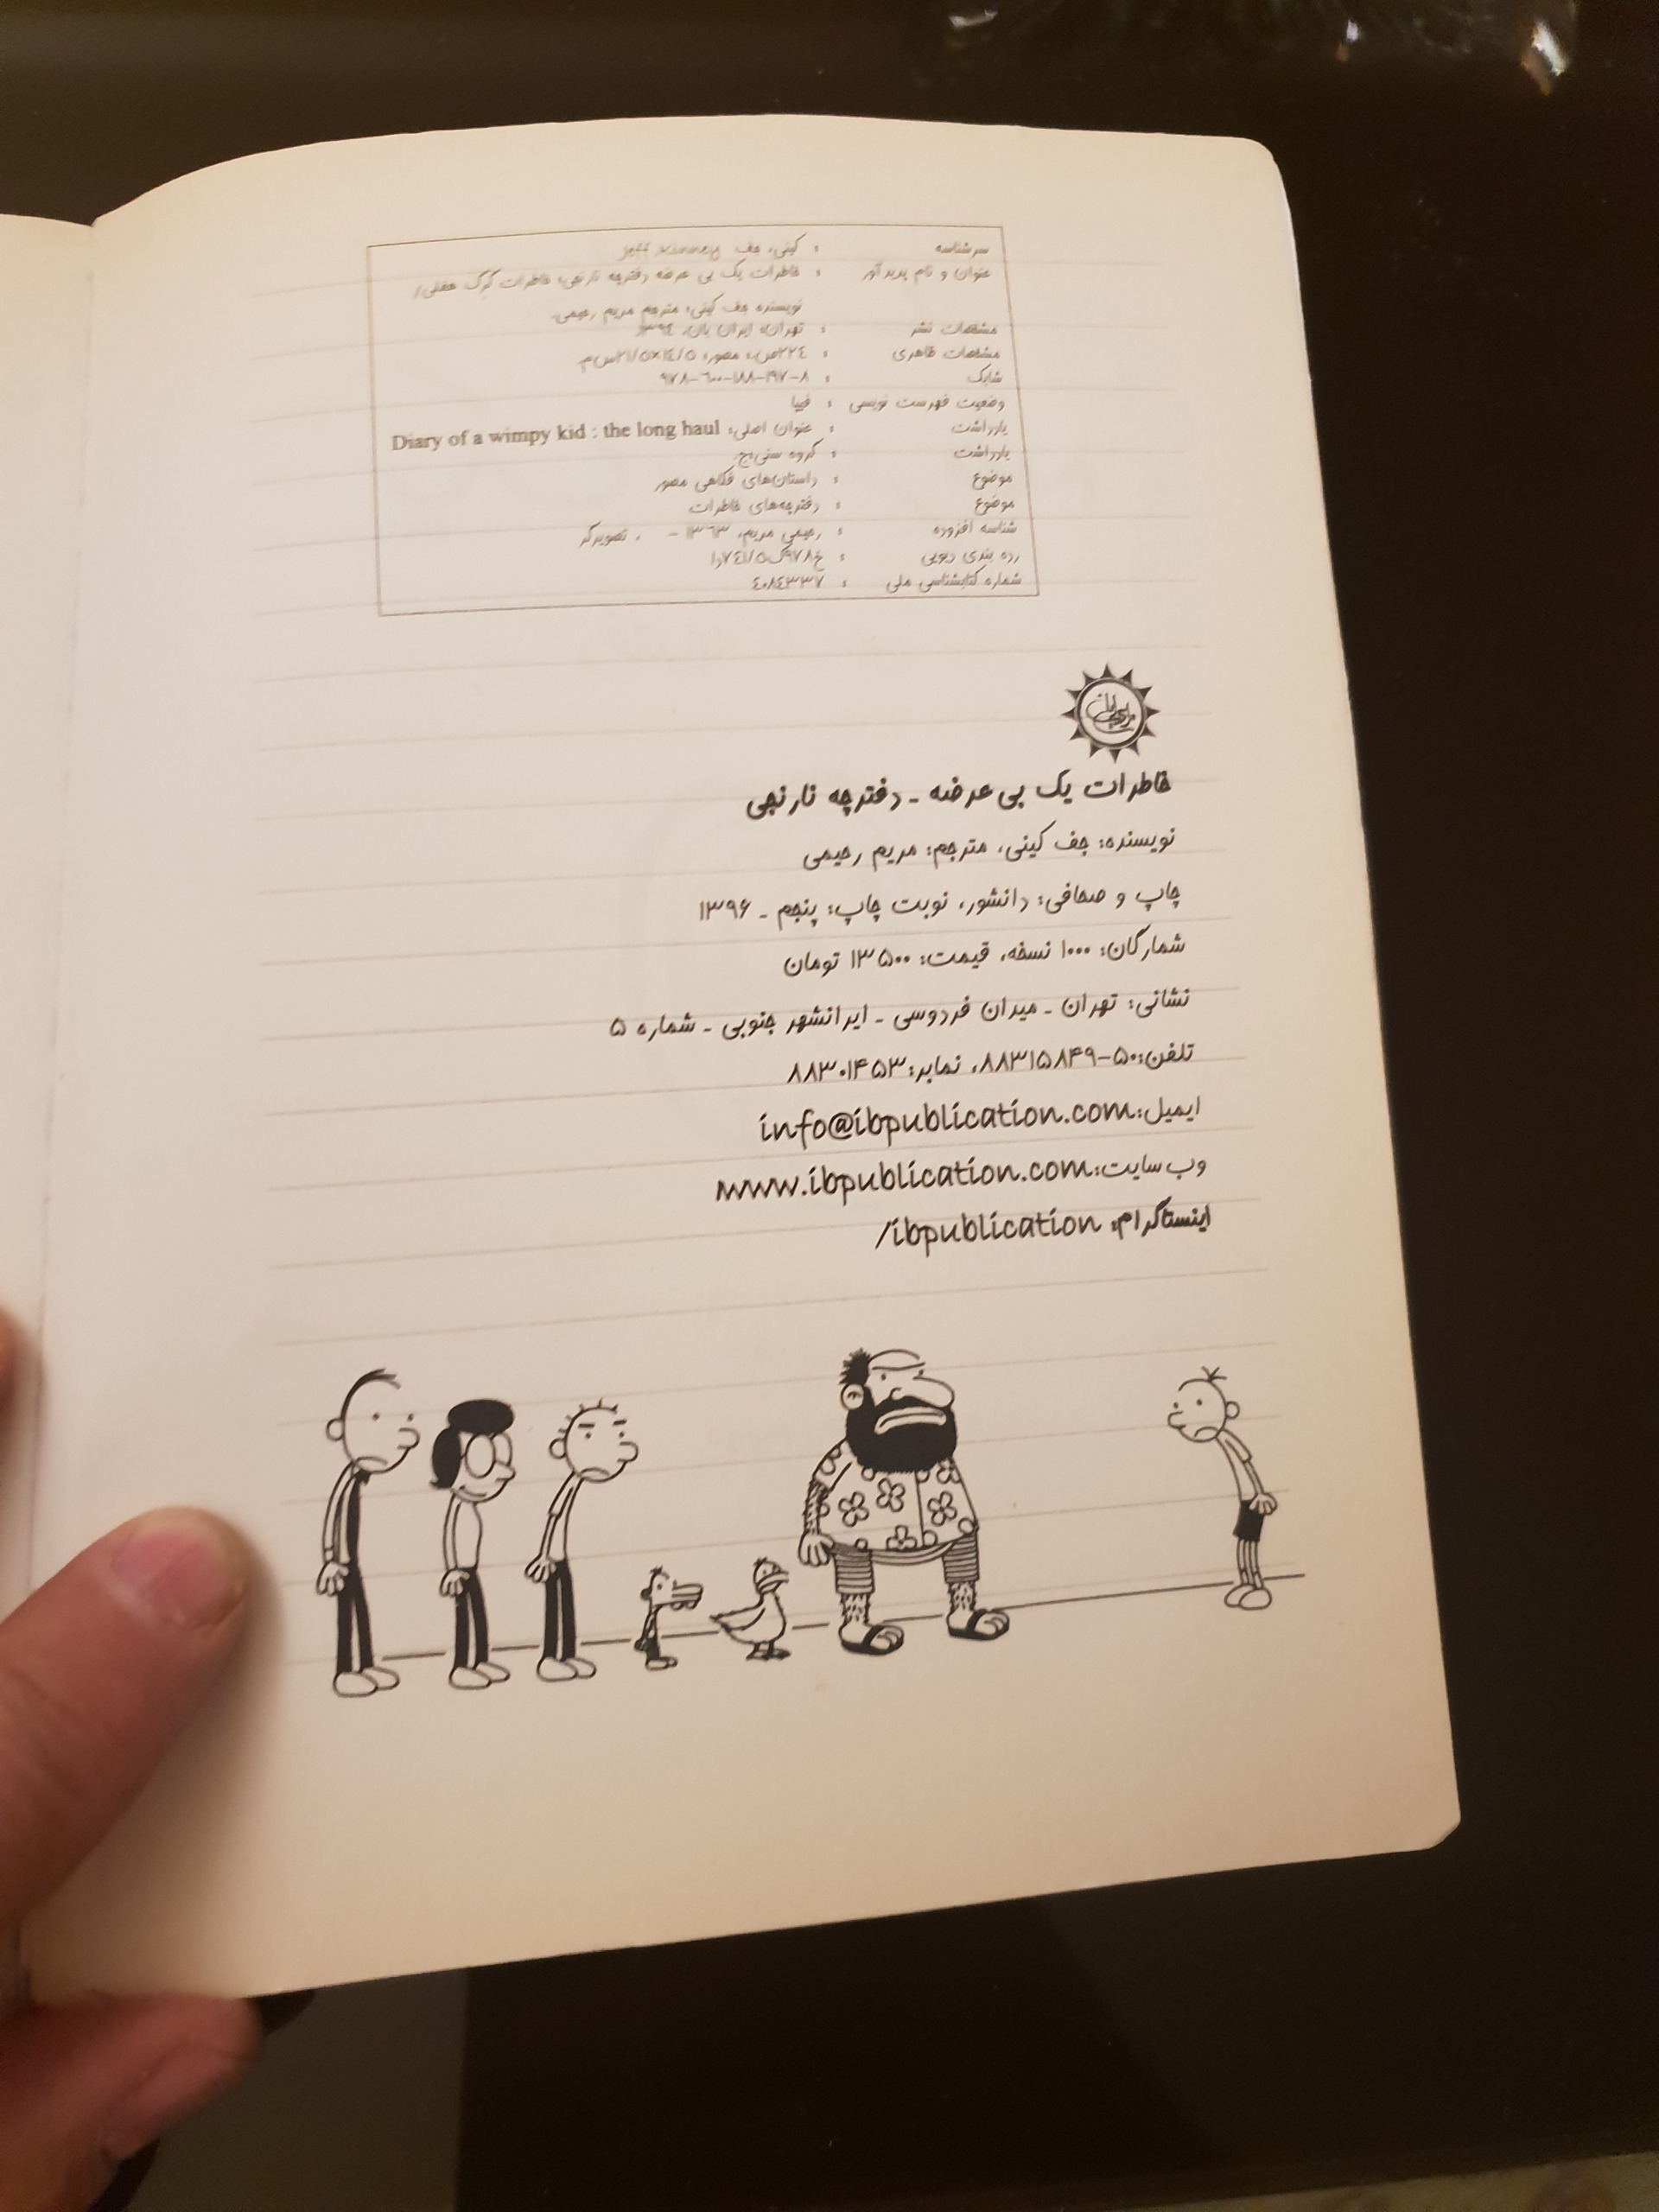 سرشناسه : کینی، جف Jeff Kinney
عنوان و نام پدیدآور : خاطرات یک بی عرضه دفترچه نارنجی، خاطرات گرگ هفلی/
نویسنده جف کینی؛ مترجم مریم رحیمی.
مشخصات نشر : تهران: ایران بان، ۱۳۹٤.
مشخصات ظاهری : ۲۲٤ص.: مصور؛ ۱٤/۵×۲۱/۵س‌م.
شابک : ۹۷۸-۶۰۰-۱۸۸-۱۹۷-۸
وضعیت فهرست نویسی : فیپا
یادداشت : عنوان اصلی: Diary of a wimpy kid : the long haul
یادداشت : گروه سنی:ج.
موضوع : داستان‌های فکاهی مصور
موضوع : دفترچه‌های خاطرات
شناسه افزوده : رحیمی مریم، ۱۳۶۳ - ، تصویرگر
رده بندی دیویی :
شماره کتابشناسی ملی : ٤۰۸٤۳۳۷
خاطرات یک بی عرضه ـ دفترچه نارنجی
نویسنده: جف کینی، مترجم: مریم رحیمی
چاپ و صحافی: دانشور، نوبت چاپ: پنجم ـ ۱۳۹۶
شمارگان: ۱۰۰۰ نسخه، قیمت: ۱۳۵۰۰ تومان
نشانی: تهران ـ میدان فردوسی ـ ایرانشهر جنوبی ـ شماره ۵
تلفن: ۵۰-۸۸۳۱۵۸۴۹، نمابر: ۸۸۳۰۱۴۵۳
ایمیل: info@ibpublication.com
وب سایت: www.ibpublication.com
اینستاگرام: ibpublication/